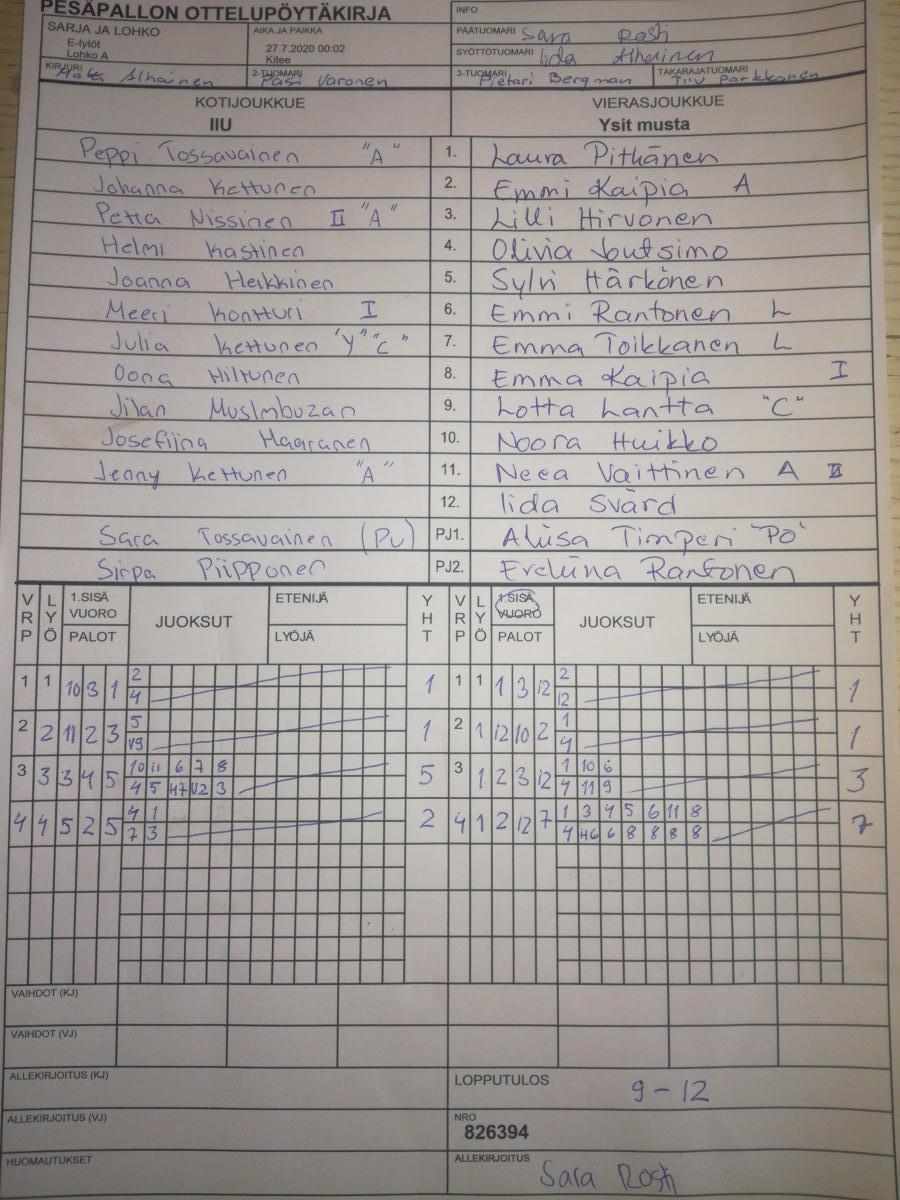 PESÄPALLON OTTELUPÖYTÄKIRJA
INFO
SARJA JA LOHKO
E-tytöt
Lohko A
AIKA JA PAIKKA
27.7.2020 00:02
Kitee
PÄÄTUOMARI Sara Rosti
SYÖTTÖTUOMARI Iida Alhainen
KIRJURI Alhainen
2-TUOMARI Pasi Varonen
3-TUOMARI Pietari Bergman
TAKARAJATUOMARI Tiiu Parkkonen
KOTIJOUKKUE
IIU
VIERASJOUKKUE
Ysit musta
Peppi Tossavainen "A" 1. Laura Pitkänen
Johanna Kettunen 2. Emmi Kaipia A
Petta Nissinen II "A" 3. Lilli Hirvonen
Helmi Kastinen 4. Olivia Joutsimo
Joanna Heikkinen 5. Sylvi Härkönen
Meeri Kontturi I 6. Emmi Rantonen L
Julia Kettunen "Y" "C" 7. Emma Toikkanen L
Oona Hiltunen 8. Emma Kaipia I
Jilan Muslmbuzan 9. Lotta Lantta "C"
Josefiina Haaranen 10. Noora Huikko
Jenny Kettunen "A" 11. Neea Vaittinen A II
12. Iida Svärd
Sara Tossavainen (PU) PJ1. Aliisa Timperi "PO"
Sirpa Piipponen PJ2. Eveliina Rantonen
VRP LYÖ 1.SISÄ VUORO PALOT JUOKSUT ETENIJÄ LYÖJÄ YHT VRP LYÖ 1.SISÄ VUORO PALOT JUOKSUT ETENIJÄ LYÖJÄ YHT
1 1 10 3 1 2 1 1 1 1 3 12 2 1
4 12
2 2 11 2 3 5 1 2 1 12 10 2 1 1
V9 4
3 3 3 4 5 10 11 6 7 8 5 3 1 2 3 12 1 10 6 3
4 5 H7 V2 3 4 11 9
4 4 5 2 5 4 1 2 4 1 2 12 7 1 3 4 5 6 11 8 7
7 3 4 H6 6 8 8 8 8
VAIHDOT (KJ)
VAIHDOT (VJ)
ALLEKIRJOITUS (KJ)
LOPPUTULOS 9-12
ALLEKIRJOITUS (VJ)
NRO
826394
HUOMAUTUKSET
ALLEKIRJOITUS Sara Rosti